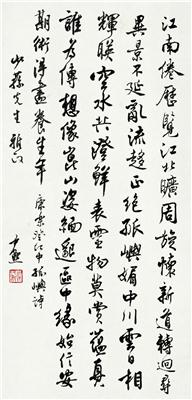 江南倦历览江北旷周旋怀新道转迥寻
異景不延亂流趨正絕孤嶼媚中川雲日相
輝暎空水共澄鮮表靈物莫賞蘊真
誰為傳想像崑山姿緬邈區中緣始信安
期術得盡養生年 康樂登江中孤嶼詩
少蓀先生雅正 尹默